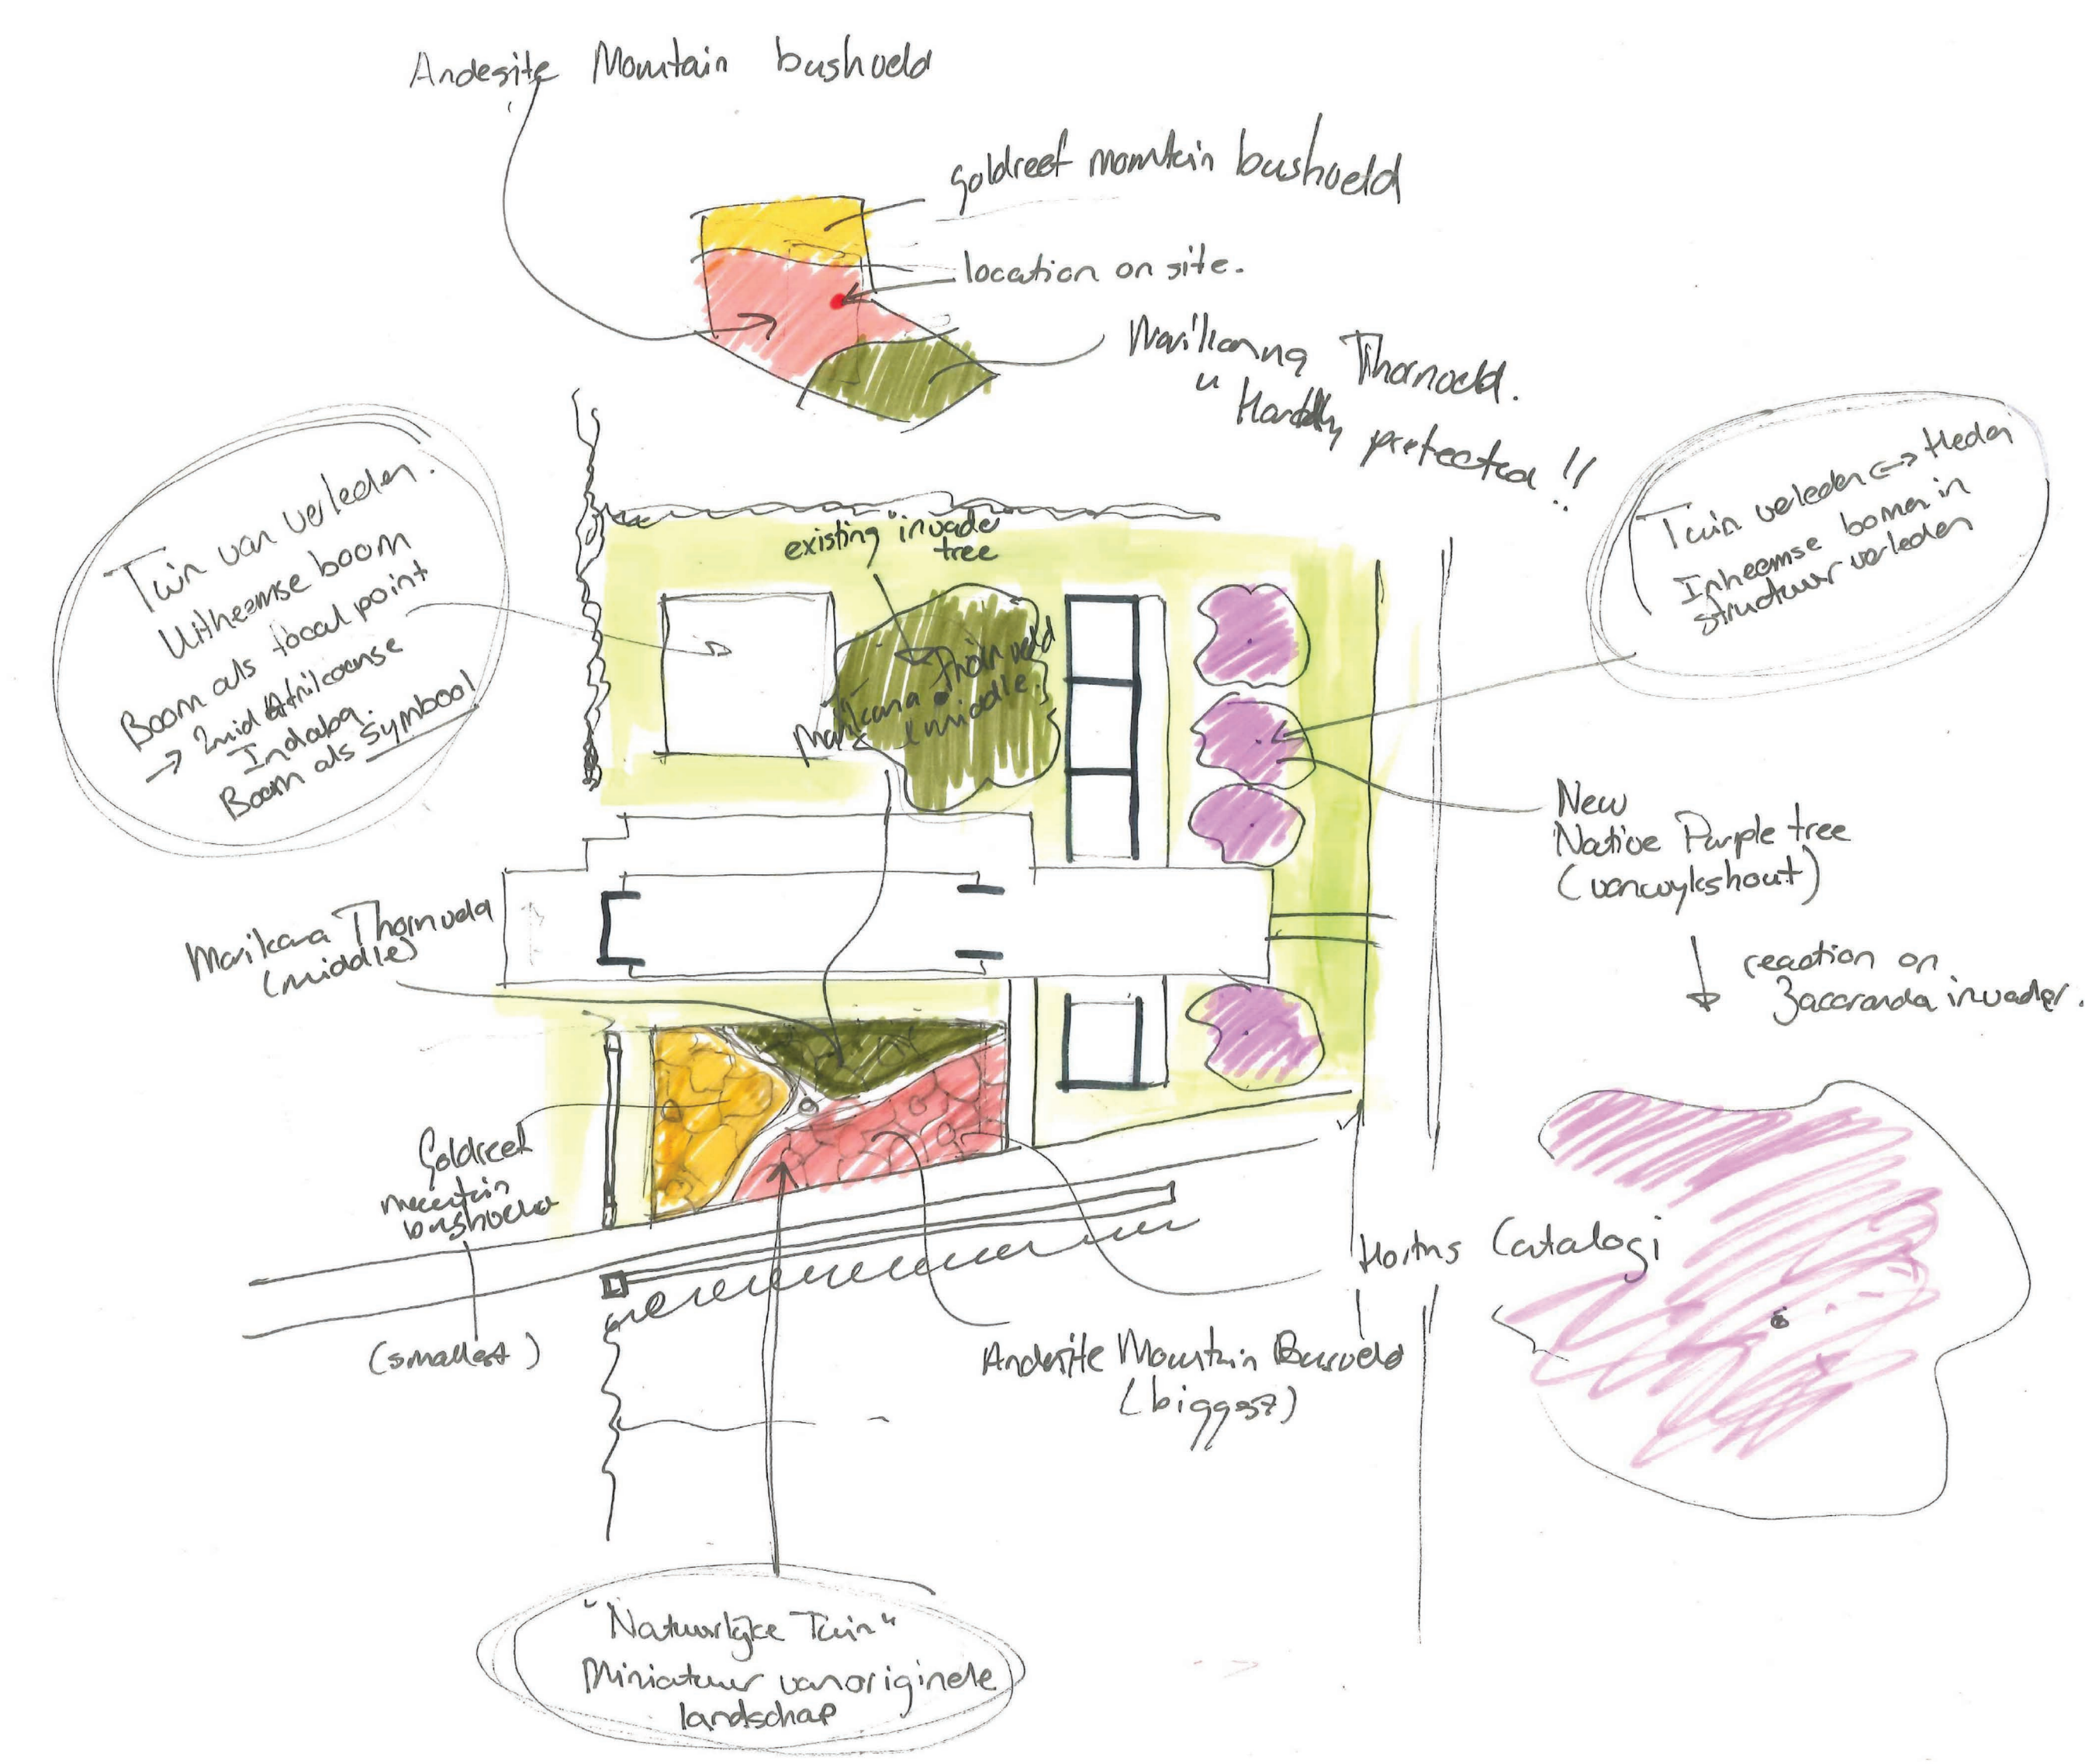 Andesite Mountain bushveld
Goldreef mountain bushveld
location on site.
Marikanna Thornveld.
" Hardly protected !!
Tuin van verleden.
Uitheemse boom
Boom als focal point
→ Zuid Afrikaanse
Indaba.
Boom als symbool
Tuin verleden ↔ Heden
Inheemse bomen in
structuur verleden
existing "invader
tree
Marikana Thornveld
(middle)
New
Native Purple tree
(vanwykshout)
reaction on
Jaccaranda invader.
Marikana Thornveld
(middle)
Goldreef
mountain
bushveld
(smallest)
Hortus Catalogi
Andesite Mountain Busveld
(biggest)
"Natuurlijke Tuin"
Miniatuur van originele
landschap